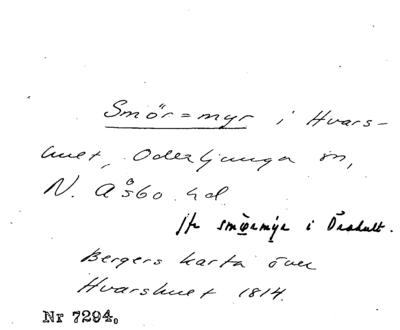 Smör=myr i Hvars-
hult, Oderljunga sn,
N. Åsbo hd
jfr smörmýr i Örahult.
Bergers karta över
Hvarshult 1814.
Nr 7294.